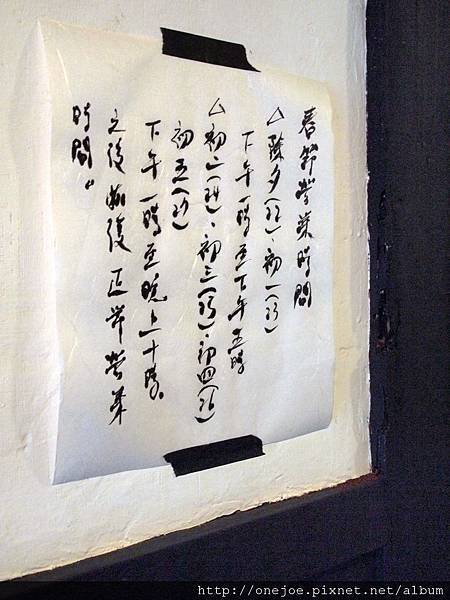 春節營業時間
△除夕(28)、初一(29)
下午一時至下午五時
△初二(30)、初三(31)、初四(2/1)
初五(2/2)
下午一時至晚上十時。
之後恢復正常營業
時間。
http://onejoe.pixnet.net/album